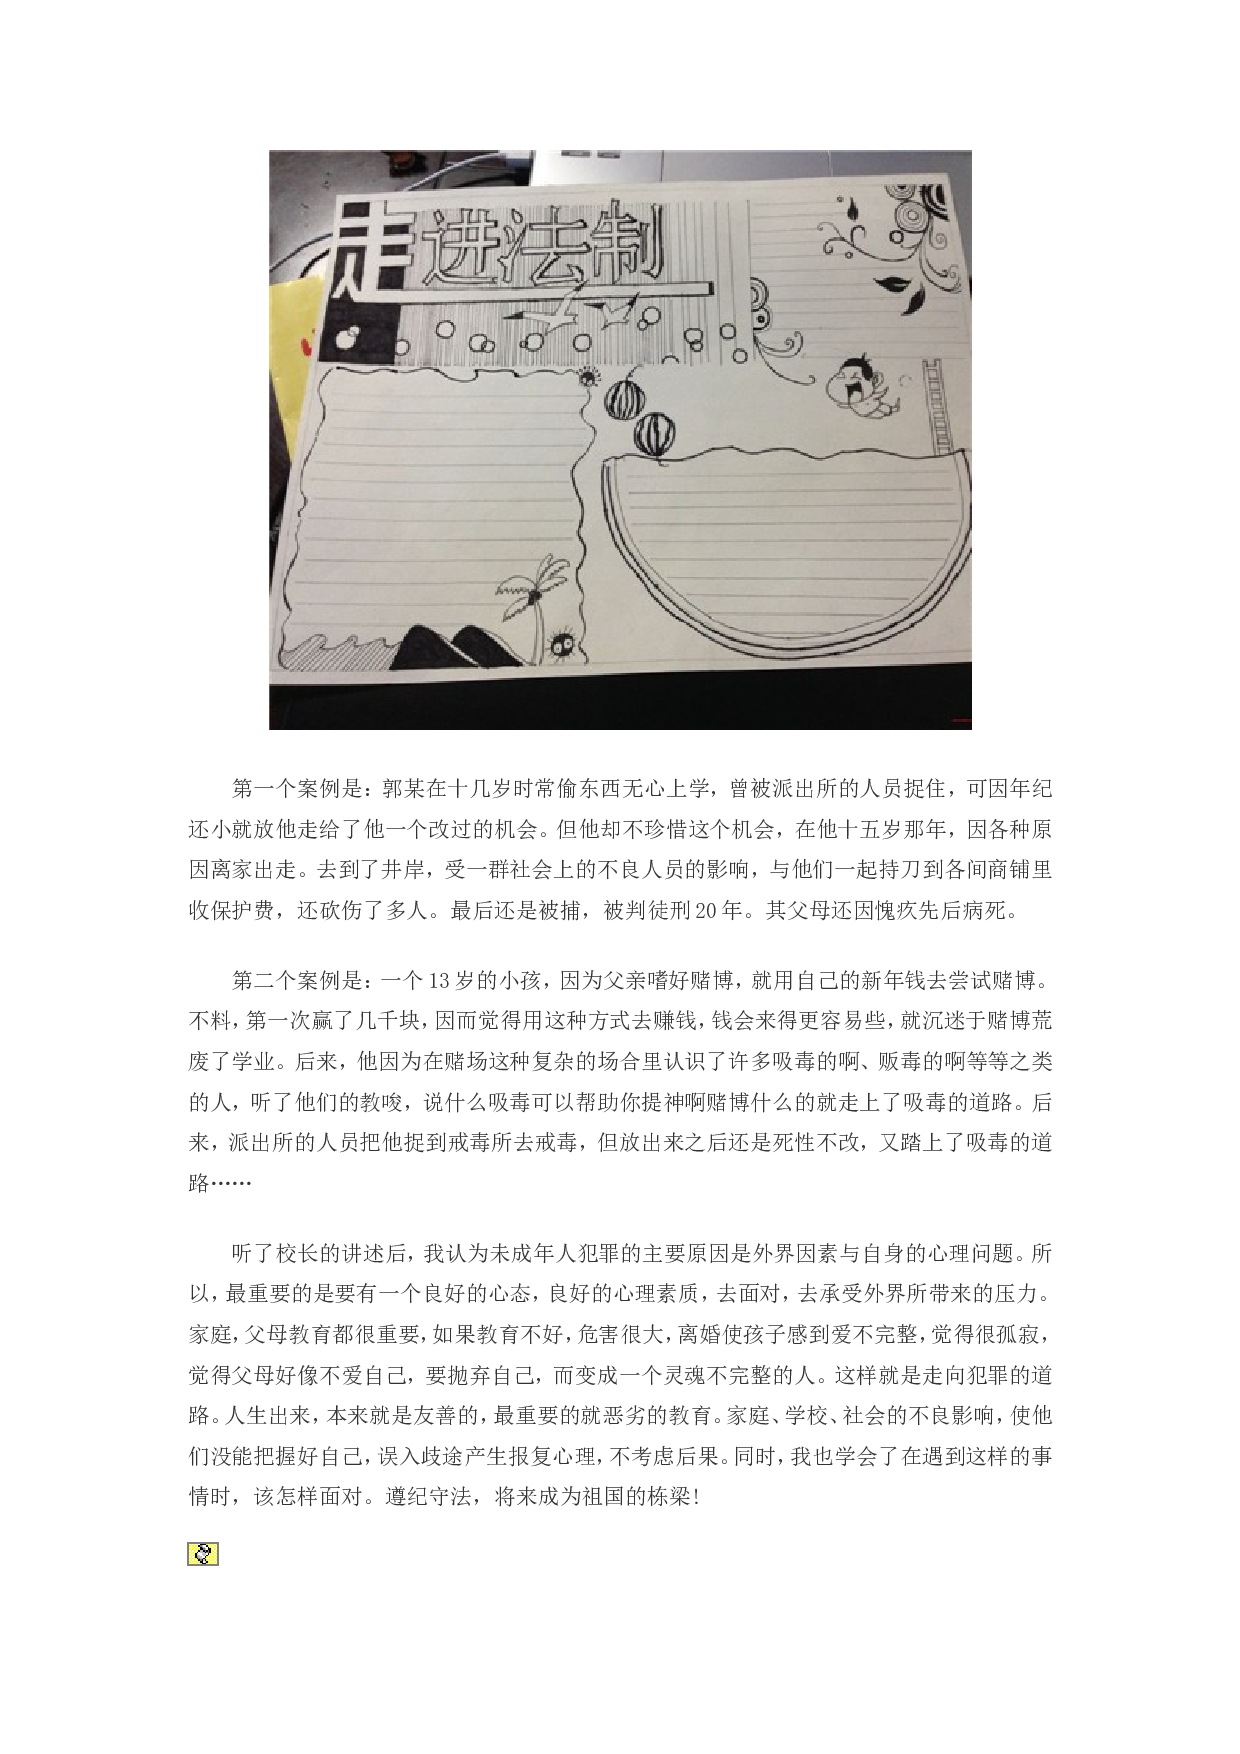 走进法制
第一个案例是：郭某在十几岁时常偷东西无心上学，曾被派出所的人员捉住，可因年纪
还小就放他走给了他一个改过的机会。但他却不珍惜这个机会，在他十五岁那年，因各种原
因离家出走。去到了井岸，受一群社会上的不良人员的影响，与他们一起持刀到各间商铺里
收保护费，还砍伤了多人。最后还是被捕，被判徒刑20年。其父母还因愧疚先后病死。
第二个案例是：一个13岁的小孩，因为父亲嗜好赌博，就用自己的新年钱去尝试赌博。
不料，第一次赢了几千块，因而觉得用这种方式去赚钱，钱会来得更容易些，就沉迷于赌博荒
废了学业。后来，他因为在赌场这种复杂的场合里认识了许多吸毒的啊、贩毒的啊等等之类
的人，听了他们的教唆，说什么吸毒可以帮助你提神啊赌博什么的就走上了吸毒的道路。后
来，派出所的人员把他捉到戒毒所去戒毒，但放出来之后还是死性不改，又踏上了吸毒的道
路……
听了校长的讲述后，我认为未成年人犯罪的主要原因是外界因素与自身的心理问题。所
以，最重要的是要有一个良好的心态，良好的心理素质，去面对，去承受外界所带来的压力。
家庭，父母教育都很重要，如果教育不好，危害很大，离婚使孩子感到爱不完整，觉得很孤寂，
觉得父母好像不爱自己，要抛弃自己，而变成一个灵魂不完整的人。这样就是走向犯罪的道
路。人生出来，本来就是友善的，最重要的就恶劣的教育。家庭、学校、社会的不良影响，使他
们没能把握好自己，误入歧途产生报复心理，不考虑后果。同时，我也学会了在遇到这样的事
情时，该怎样面对。遵纪守法，将来成为祖国的栋梁!